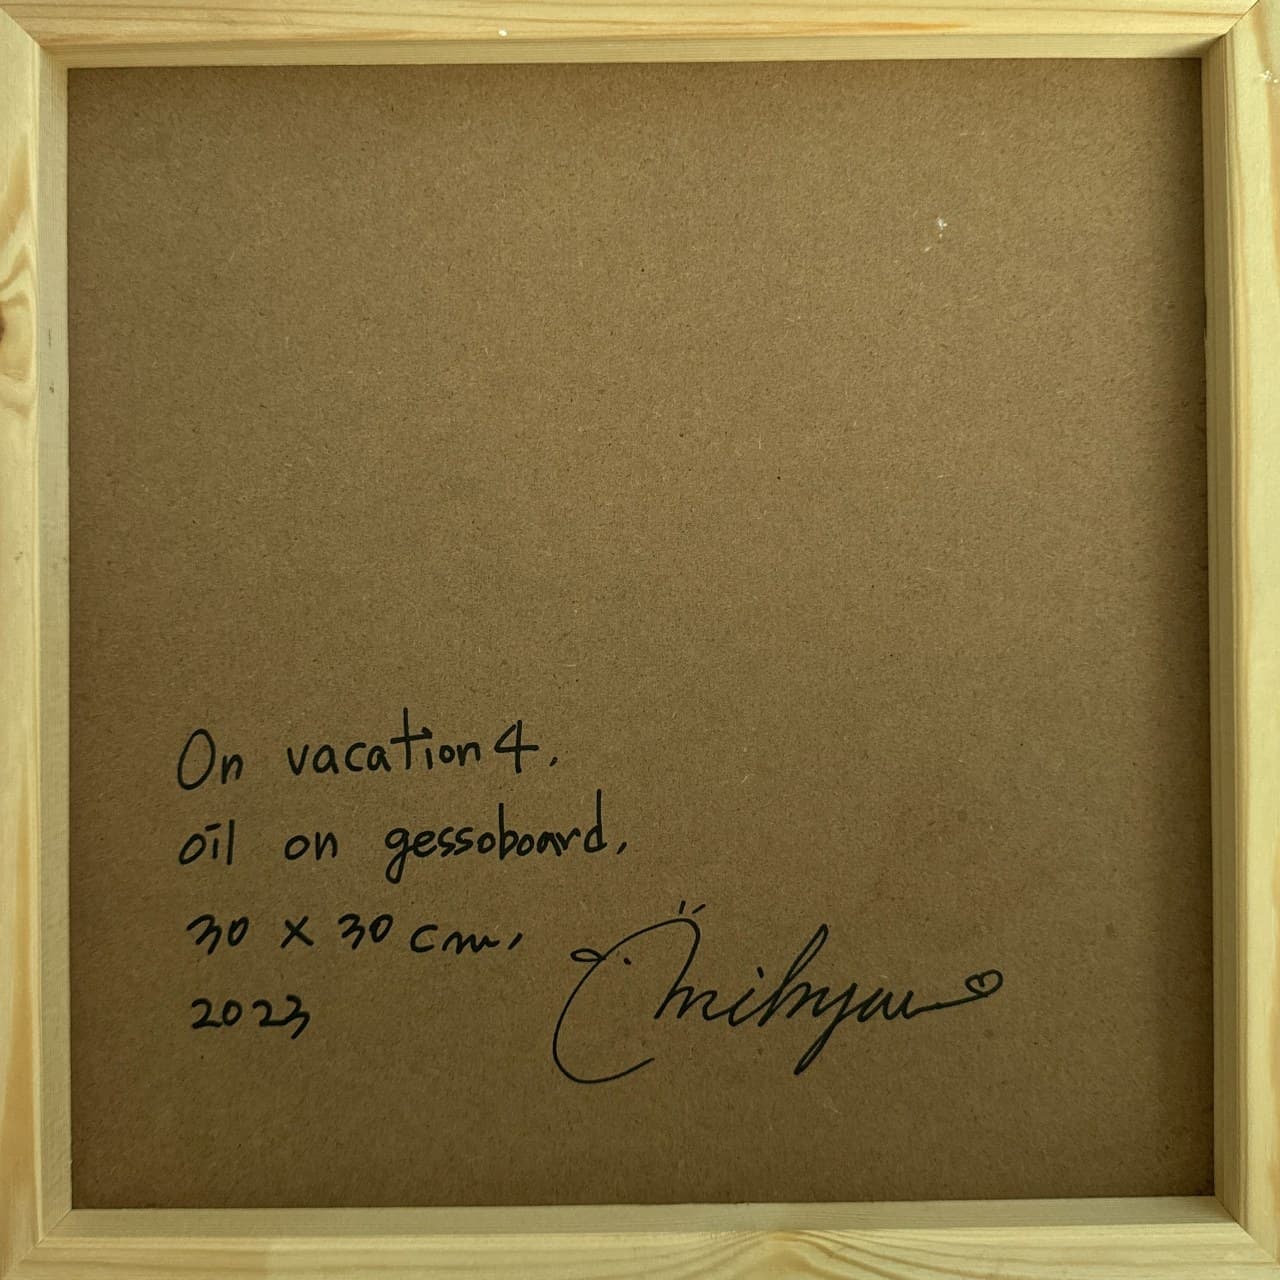 On vacation 4.
oil on gessoboard.
30 x 30 cm.
2023